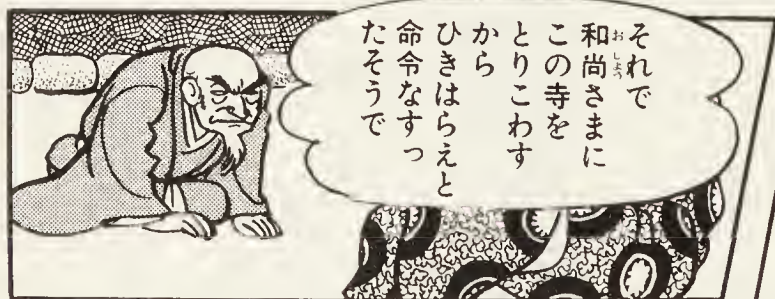 それで
和尚さまに
おしょう
この寺を
とりこわす
から
ひきはらえと
命令なすっ
たそうで